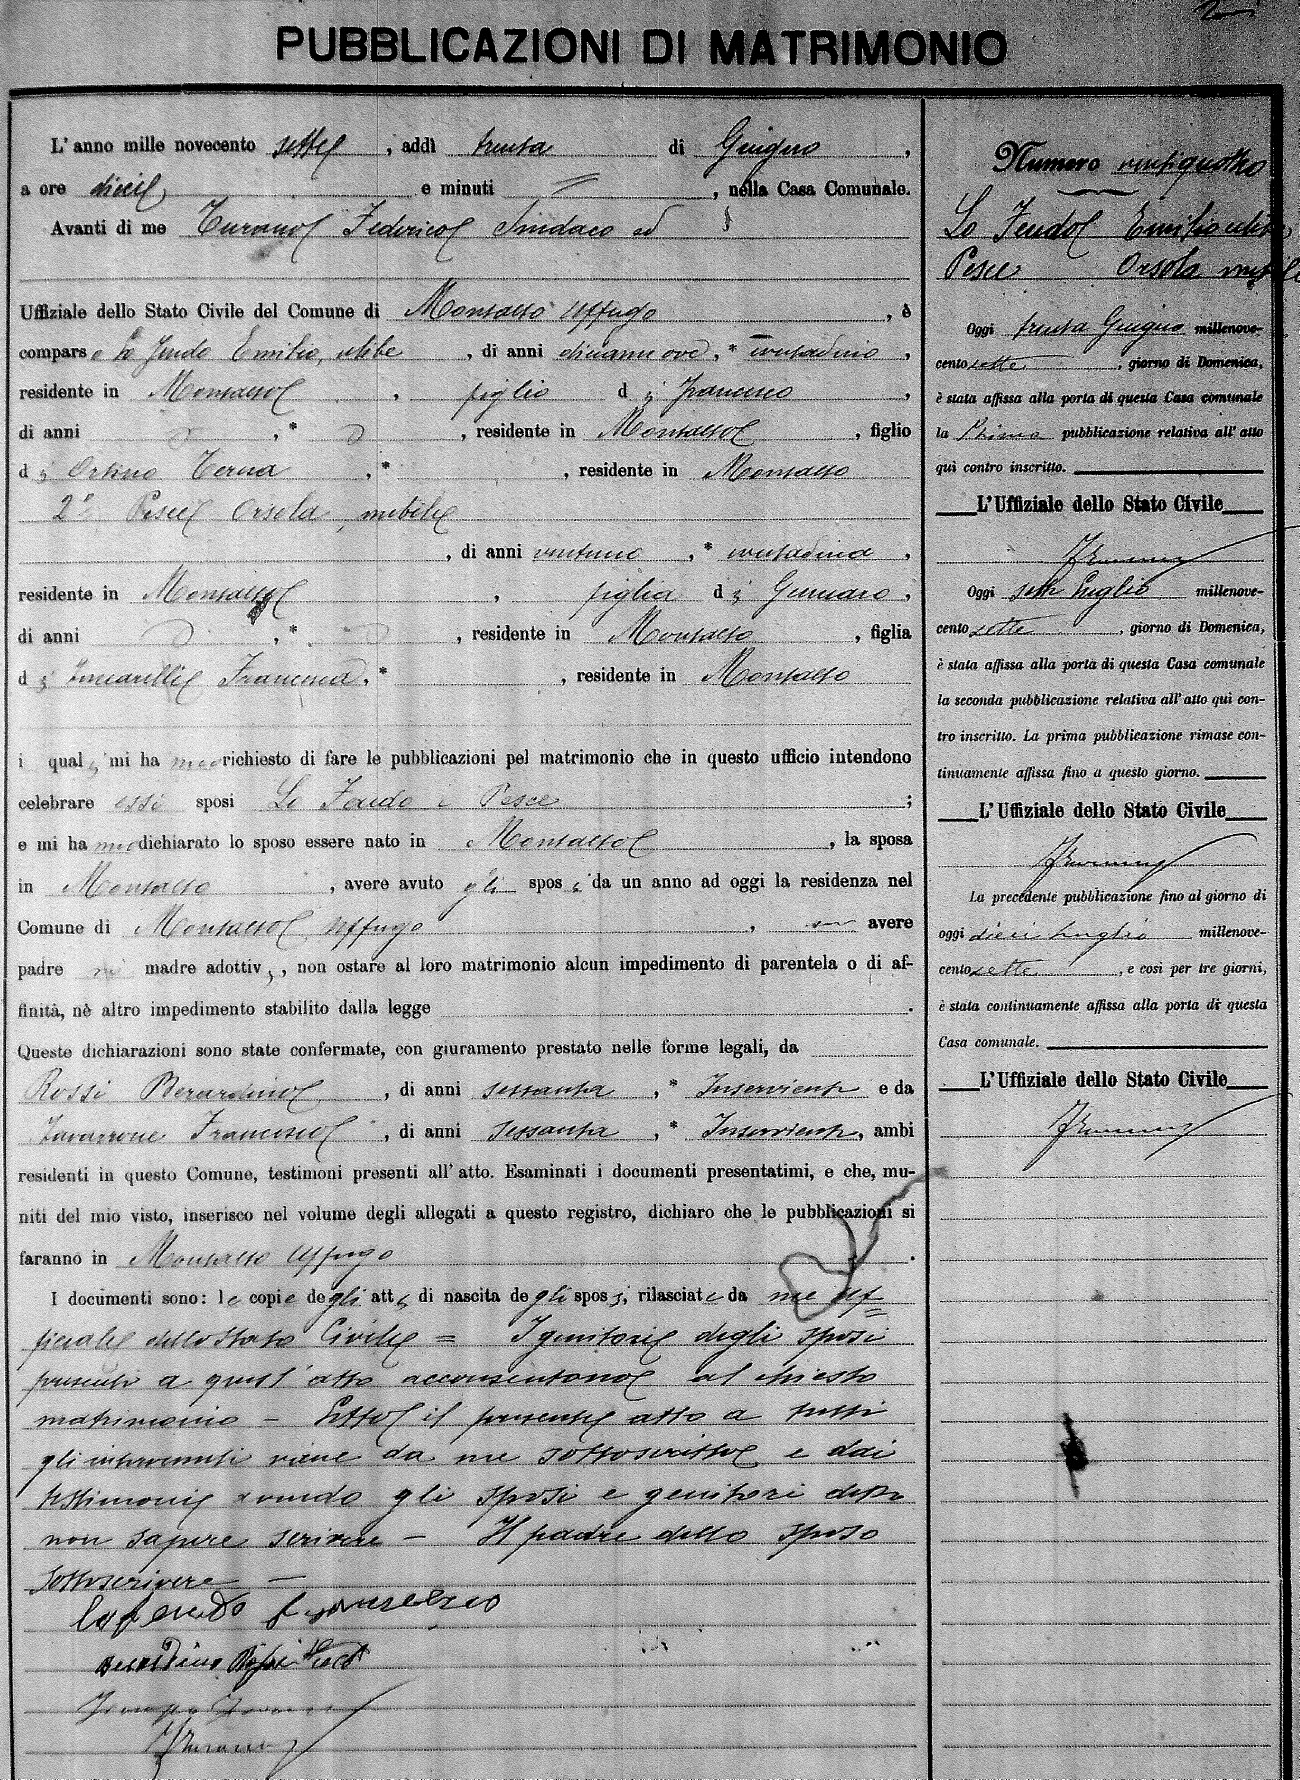 PUBBLICAZIONI DI MATRIMONIO
L'anno mille novecento sette, addì trenta di Giugno,
a ore dieci e minuti =, nella Casa Comunale.
Avanti di me Turano Federico Sindaco ed
Uffiziale dello Stato Civile del Comune di Montalto Uffugo, è
comparse Lo Feudo Emilio, celibe, di anni diciannove, * contadino,
residente in Montalto, figlio di Francesco,
di anni , * , residente in Montalto, figlio
di Ortino Teresa, * , residente in Montalto
2° Pesce Orsola, nubile
, di anni ventuno, * contadina,
residente in Montalto, figlia di Gennaro,
di anni , * , residente in Montalto, figlia
di Francesca, * , residente in Montalto
i quali mi ha richiesto di fare le pubblicazioni pel matrimonio che in questo ufficio intendono
celebrare essi sposi Lo Feudo e Pesce ;
e mi ha dichiarato lo sposo essere nato in Montalto, la sposa
in Montalto, avere avuto gli sposi da un anno ad oggi la residenza nel
Comune di Montalto Uffugo, avere
padre nè madre adottivi, non ostare al loro matrimonio alcun impedimento di parentela o di af-
finità, nè altro impedimento stabilito dalla legge .
Queste dichiarazioni sono state confermate, con giuramento prestato nelle forme legali, da
Rossi Berardino, di anni sessanta, * Inserviente e da
Zavarrone Francesco, di anni sessanta, * Inserviente, ambi
residenti in questo Comune, testimoni presenti all'atto. Esaminati i documenti presentatimi, e che, mu-
niti del mio visto, inserisco nel volume degli allegati a questo registro, dichiaro che le pubblicazioni si
faranno in Montalto Uffugo .
I documenti sono: le copie degli atti di nascita degli sposi, rilasciate da me Uf=
ficiale dello Stato Civile = I genitori degli sposi
presenti a quest'atto acconsentono al chiesto
matrimonio – Letto il presente atto a tutti
gli intervenuti viene da me sottoscritto e dai
testimoni avendo gli sposi e genitori detto
non sapere scrivere – Il padre dello sposo
sottoscrivere –
Lofeudo Francesco
Berardino Rossi
Turano
Numero ventiquattro
Lo Feudo Emilio celibe
Pesce Orsola nubile
Oggi trenta Giugno millenove-
cento sette, giorno di Domenica,
è stata affissa alla porta di questa Casa comunale
la Prima pubblicazione relativa all'atto
quì contro inscritto.
L'Uffiziale dello Stato Civile
FTurano
Oggi sette Luglio millenove-
cento sette, giorno di Domenica,
è stata affissa alla porta di questa Casa comunale
la seconda pubblicazione relativa all'atto quì con-
tro inscritto. La prima pubblicazione rimase con-
tinuamente affissa fino a questo giorno.
L'Uffiziale dello Stato Civile
FTurano
La precedente pubblicazione fino al giorno di
oggi dieci Luglio millenove-
cento sette, e così per tre giorni,
è stata continuamente affissa alla porta di questa
Casa comunale.
L'Uffiziale dello Stato Civile
FTurano